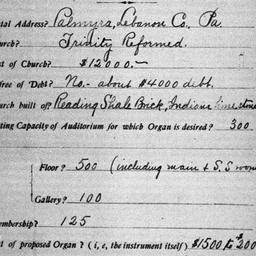 tal Address? Palmyra, Lebanon Co., Pa
urch? Trinity Reformed.
t of Church? $12000.—
ree of Debt? No.- about $4000 debt.
rch built of? Reading Shale Brick, Indiana lime stone
ting Capacity of Auditorium for which Organ is desired? 300
Floor? 500 (including main & S.S. room
Gallery? 100
mbership? 125
t of proposed Organ? (i, e, the instrument itself) $1500 to $200